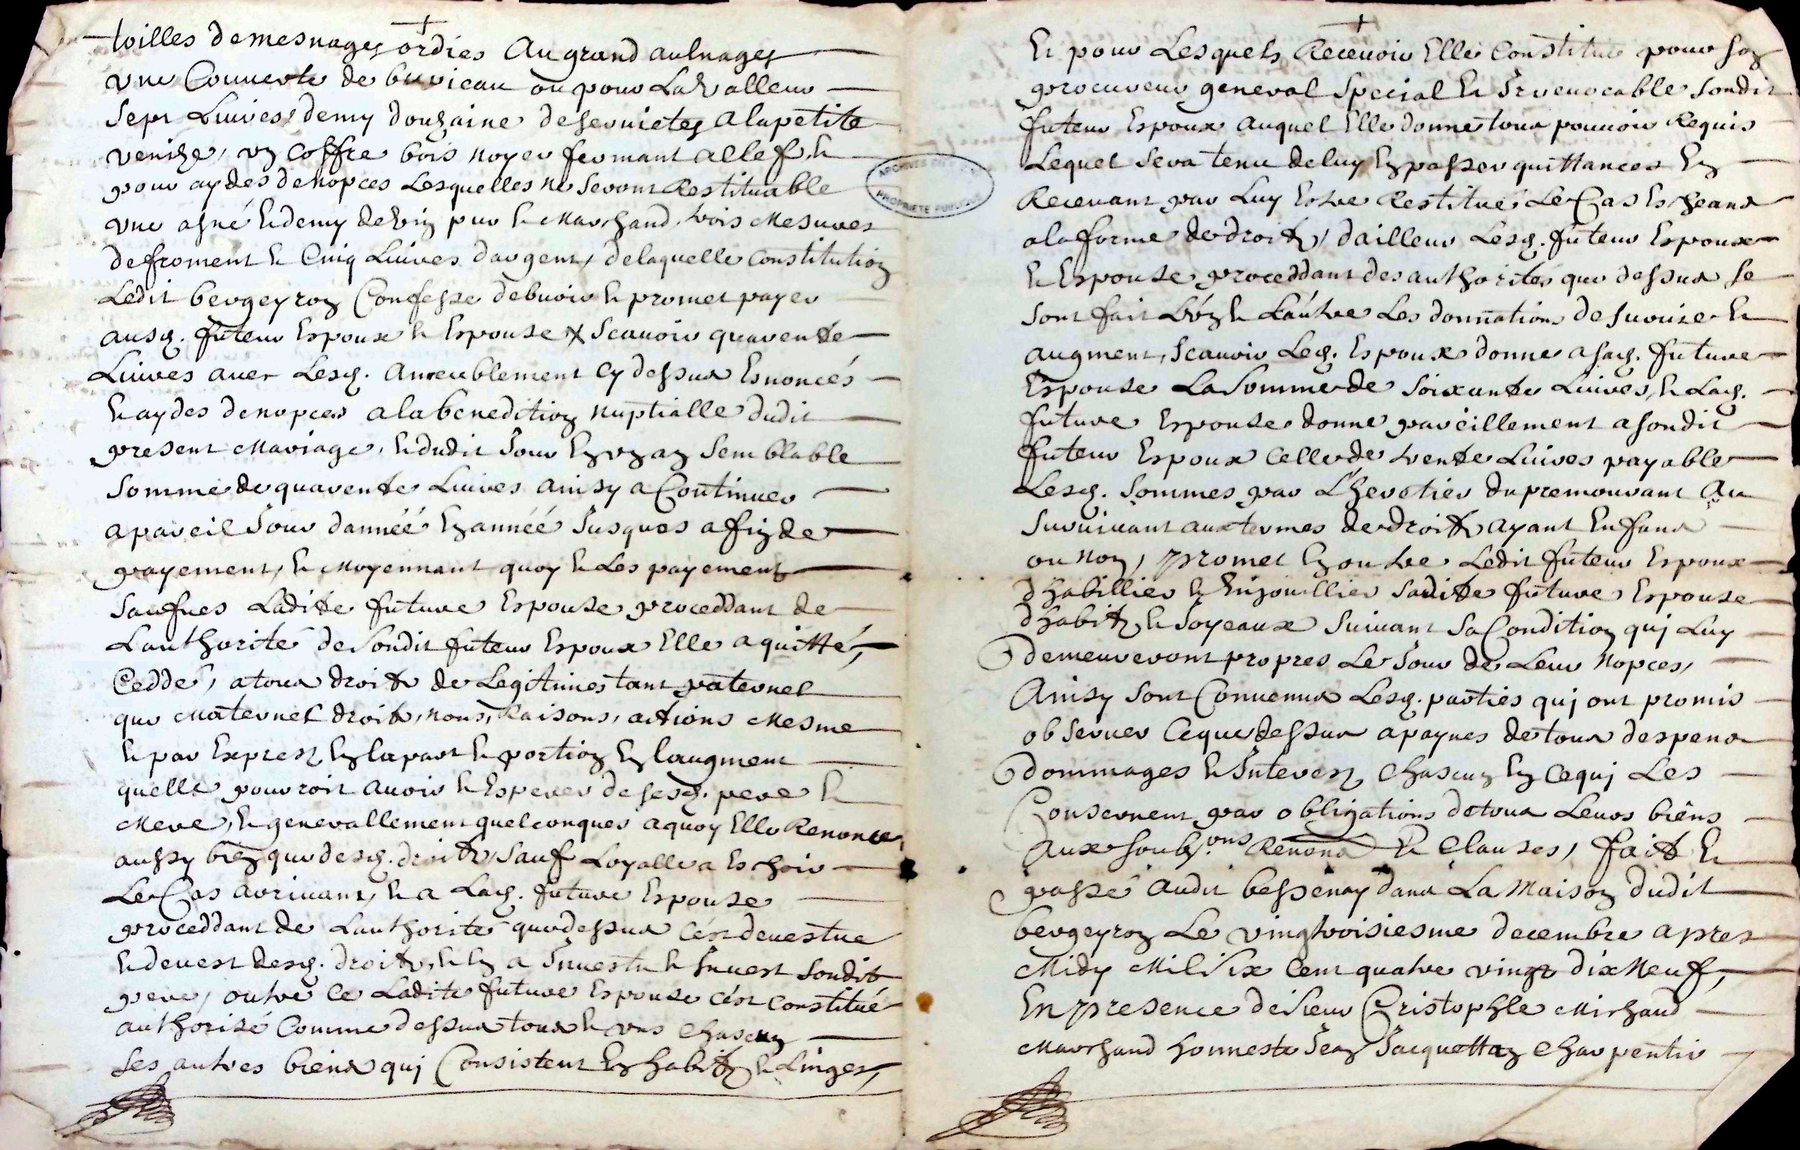 toilles de mesnages ordies au grand aulnages
une Couverte de bureau ou pour la valleur
Sept Livres, demy douzaine de serviettes a la petite
venize, un Coffre bois noyer fermant a Clef, et
pour aydes de nopces Lesquelles ne seront Restituable
une asné et demy de vin pur et Marchand, trois Mesures
de froment et Cinq Livres d'argent, de laquelle Constitution
Ledit bergeyron Confesse debvoir et promet payer
ausd. futeur Espoux et Espouse Scavoir quarente
Livres avec Lesd. Ameublement Cy dessus Esnoncés
et aydes de nopces a la benedition nuptialle dudit
present Mariage, et dudit Jour En un an Semblable
Somme de quarente Livres ainsy a Continuer
a pareil Jour d'anneé En anneé Jusques a fin de
payement, et Moyennant quoy et Les payement
Saufues Ladite future Espouse proceddant de
L'authorité de Sondit futeur Espoux Elle a quitté,
Cedde, a tous droits de Legitimes tant paternel
que Maternel droits, noms, Raisons, actions Mesme
et par Exprest En la part et portion En l'augment
quelle pourroit avoir et Esperer de sesd. pere et
Mere, et generallement quelconques a quoy Elle Renonce
aussy bien que desd. droits, Sauf Loyalle a Eschoir
Le Cas arrivant, et a Lad. future Espouse
proceddant de L'authorité que dessus C'est devestue
et devest desd. droits, et En a Investu et Invest Sondit
pere, outre Ce Ladite future Espouse C'est Constitué
authorisé Comme dessus tous et uns Chascun
Ses autres biens qui Consistent En habits et Linges,
Et pour Lesquels Recevoir Elle Constitue pour son
procureur general Special et Irrevocable Sondit
futeur Espoux auquel Elle donne tous pouvoir Requis
Lequel Sera tenu de luy En passer quittances En
Recevant par Luy Estre Restitué Le Cas Escheant
a la forme de droits, d'ailleur Lesd. futeur Espoux
et Espouse proceddant des authorités que dessus se
sont fait L'un et L'autre Les donnations de Survise et
augment, Scavoir Led. Espoux donne a sad. future
Espouse La Somme de Soixante Livres, et Lad.
future Espouse donne pareillement a sondit
futeur Espoux Celle de trente Livres payable
Lesd. Sommes par L'herotier du premourant Au
Survivant aux termes de droits ayant Enfans
ou Non, promet En outre Ledit futeur Espoux
d'habillier et Enjouillier Sadite future Espouse
d'habits et Joyeaux Suivant Sa Condition qui Luy
demeureront propres Le Jour de Leur Nopces,
Ainsy Sont Convenus Lesd. parties qui ont promis
observer Ceque dessus a paynes de tous despens
dommages et Interest, Chascun En Cequi Les
Consernent par obligations de tous Leurs biens
Aux soub.ons Renond. et Clauses, fait et
passé Audit bessenay dans La Maison dudit
bergeyron Le vingtroisiesme decembre apres
Midy Mil Six Cent quatre vingt dix Neuf,
En presence de Sieur Cristophle Michaud
Marchand honneste Jean Jacquettan Charpentie